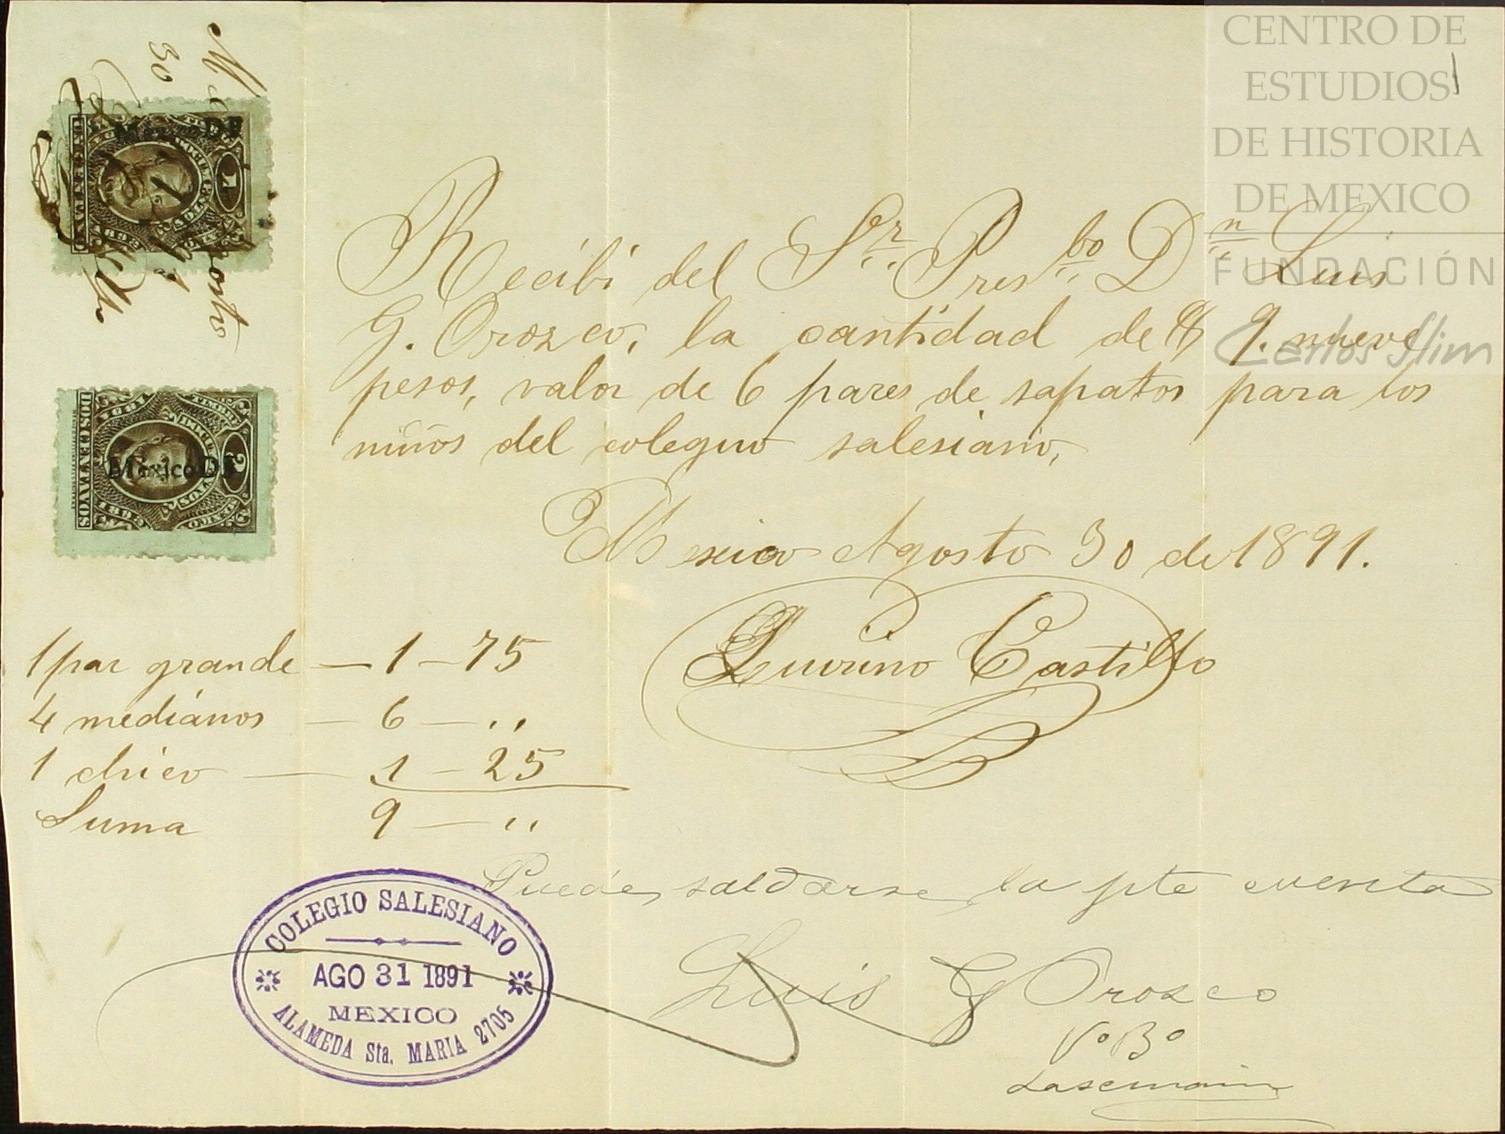 CENTRO DE
ESTUDIOS
DE HISTORIA
DE MEXICO
FUNDACIÓN
Carlos Slim
Mexico DF
Mexico DF
DOS CENTAVOS
Recibí del Sr. Presbo. Dn. Luis
G. Orozco, la cantidad de $ 9. nueve
pesos, valor de 6 pares de sapatos para los
niños del colegio salesiano,
Mexico Agosto 30 de 1891.
Castillo
1 par grande — 1 — 75
4 medianos — 6 — ,,
1 chico — 1 — 25
Suma 9 — ,,
Puede saldarse la pte cuenta
Luis G Orozco
VoBo
COLEGIO SALESIANO
AGO 31 1891
MEXICO
ALAMEDA Sta. MARIA 2705